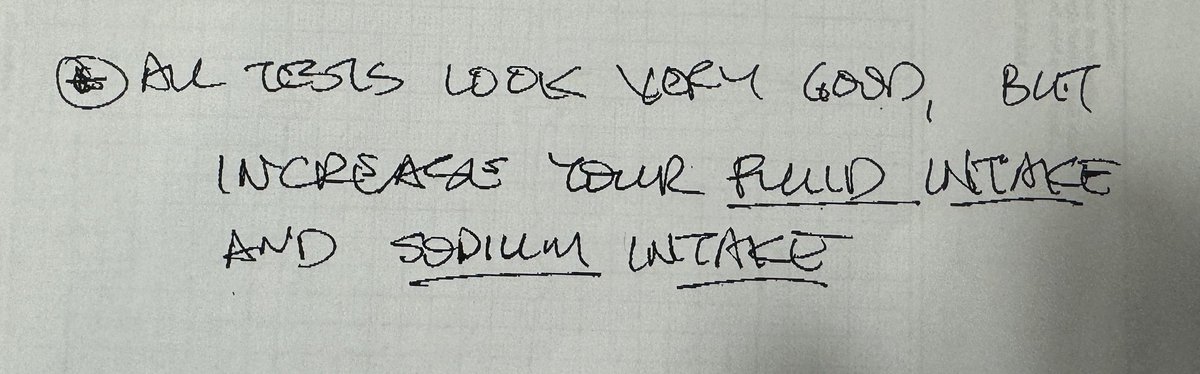 ALL TESTS LOOK VERY GOOD, BUT
INCREASE YOUR FLUID INTAKE
AND SODIUM INTAKE